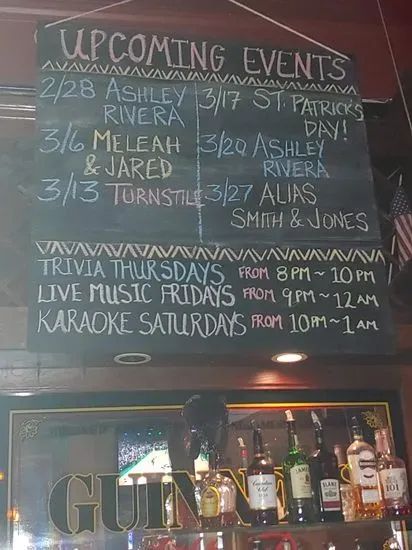 UPCOMING EVENTS
2/28 ASHLEY
RIVERA
3/6 MELEAH
& JARED
3/13 TURNSTILE
3/17 ST. PATRICK'S
DAY!
3/20 ASHLEY
RIVERA
3/27 ALIAS
SMITH & JONES
TRIVIA THURSDAYS FROM 8PM~10PM
LIVE MUSIC FRIDAYS FROM 9PM~12AM
KARAOKE SATURDAYS FROM 10PM~1AM
GUINNESS
101